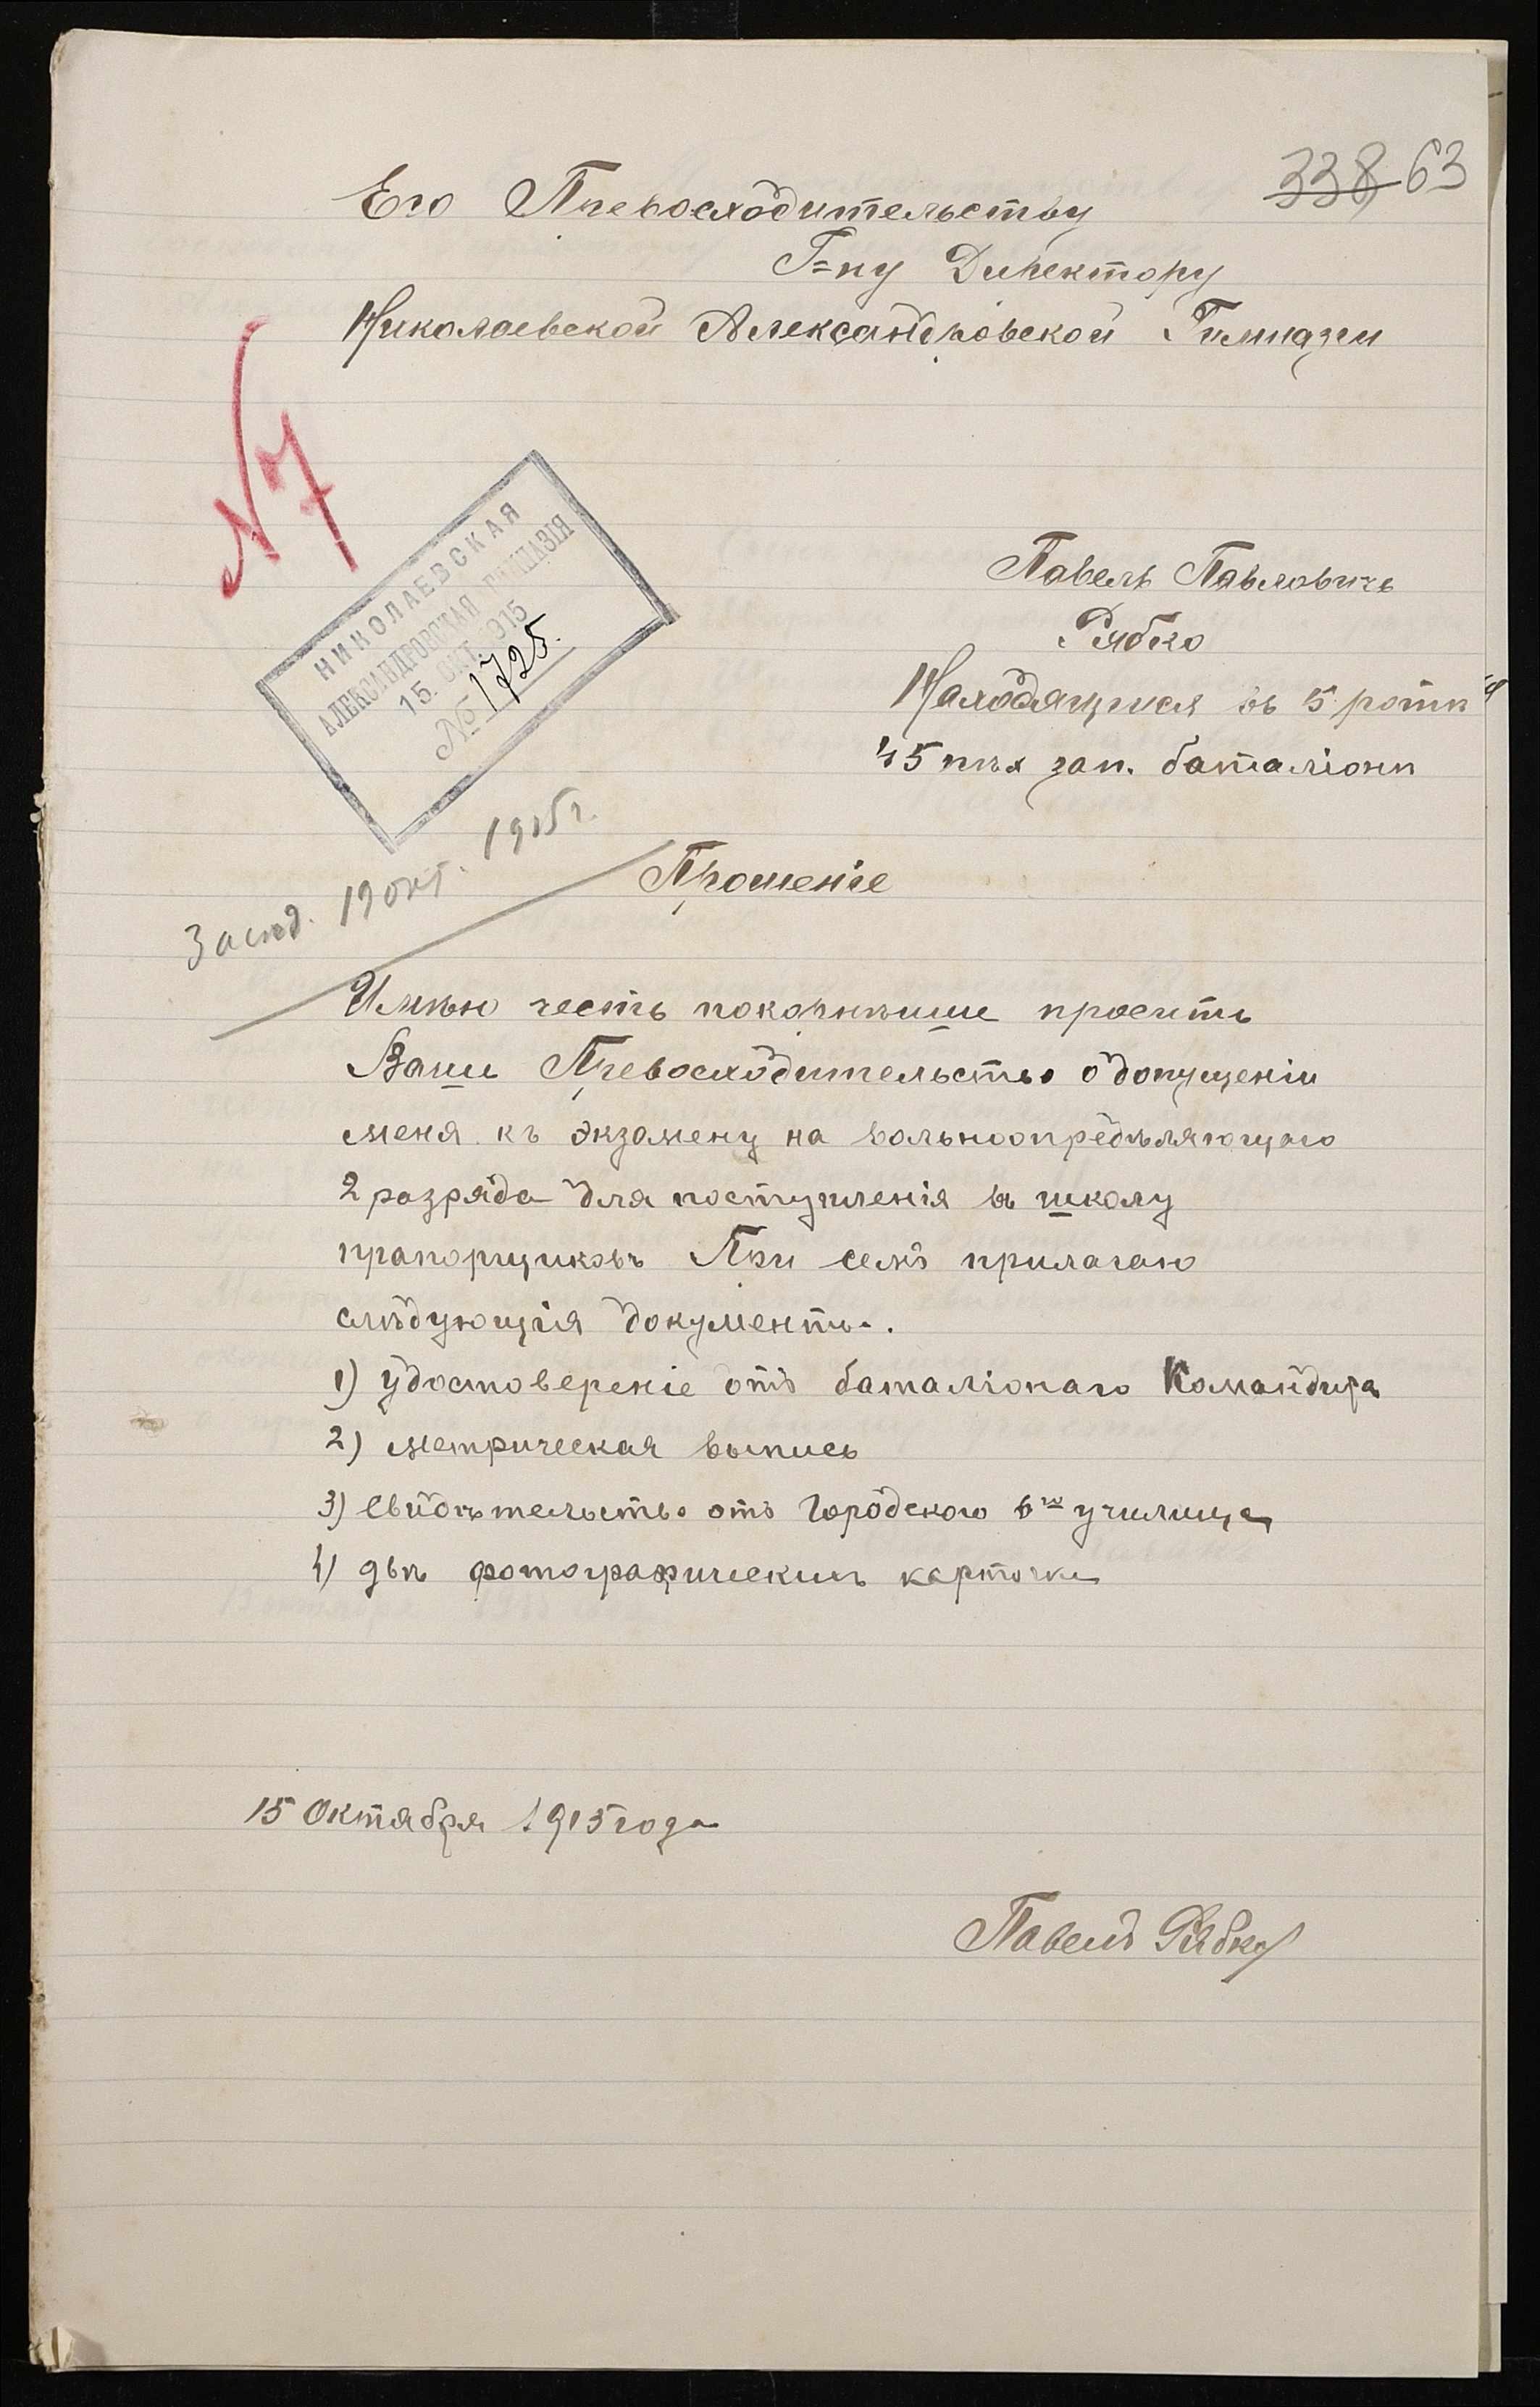 338 63
Его Превосходительству
Г=ну Директору
Николаевской Александровской Гимназіи
№7
НИКОЛАЕВСКАЯ
АЛЕКСАНДРОВСКАЯ ГИМНАЗІЯ
15. ОКТ. 915
№ 1725.
Павелъ Павловичъ
Рябко
Находящимся въ 5 ротѣ
45 пѣх зап. баталіонѣ
Засѣд. 19 окт. 1915 г.
Прошеніе
Имѣю честь покорнѣише просить
Ваши Превосходительство о допущеніи
меня къ экзамену на вольноопредѣляющаго
2 разряда для поступленія въ школу
прапорщиковъ При семъ прилагаю
слѣдующія документы.
1) удостовереніе отъ баталіонаго Командира
2) метрическая выпись
3) Свидѣтельство отъ Городского училища
4) двѣ фотографическихъ карточки
15 Октября 1915 года
Павелъ Рябко